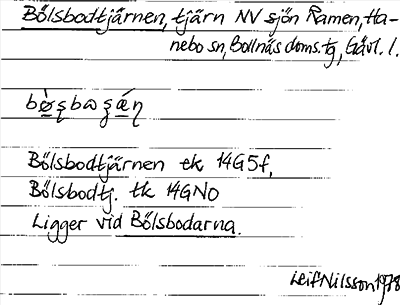 Bölsbodtjärnen, tjärn NV sjön Ramen, Ha-
nebo sn, Bollnäs doms.tg, Gävl. l.
Bölsbodtjärnen ek 14G5f,
Bölsbodtj. tk 14GNO
Ligger vid Bölsbodarna.
Leif Nilsson 1978